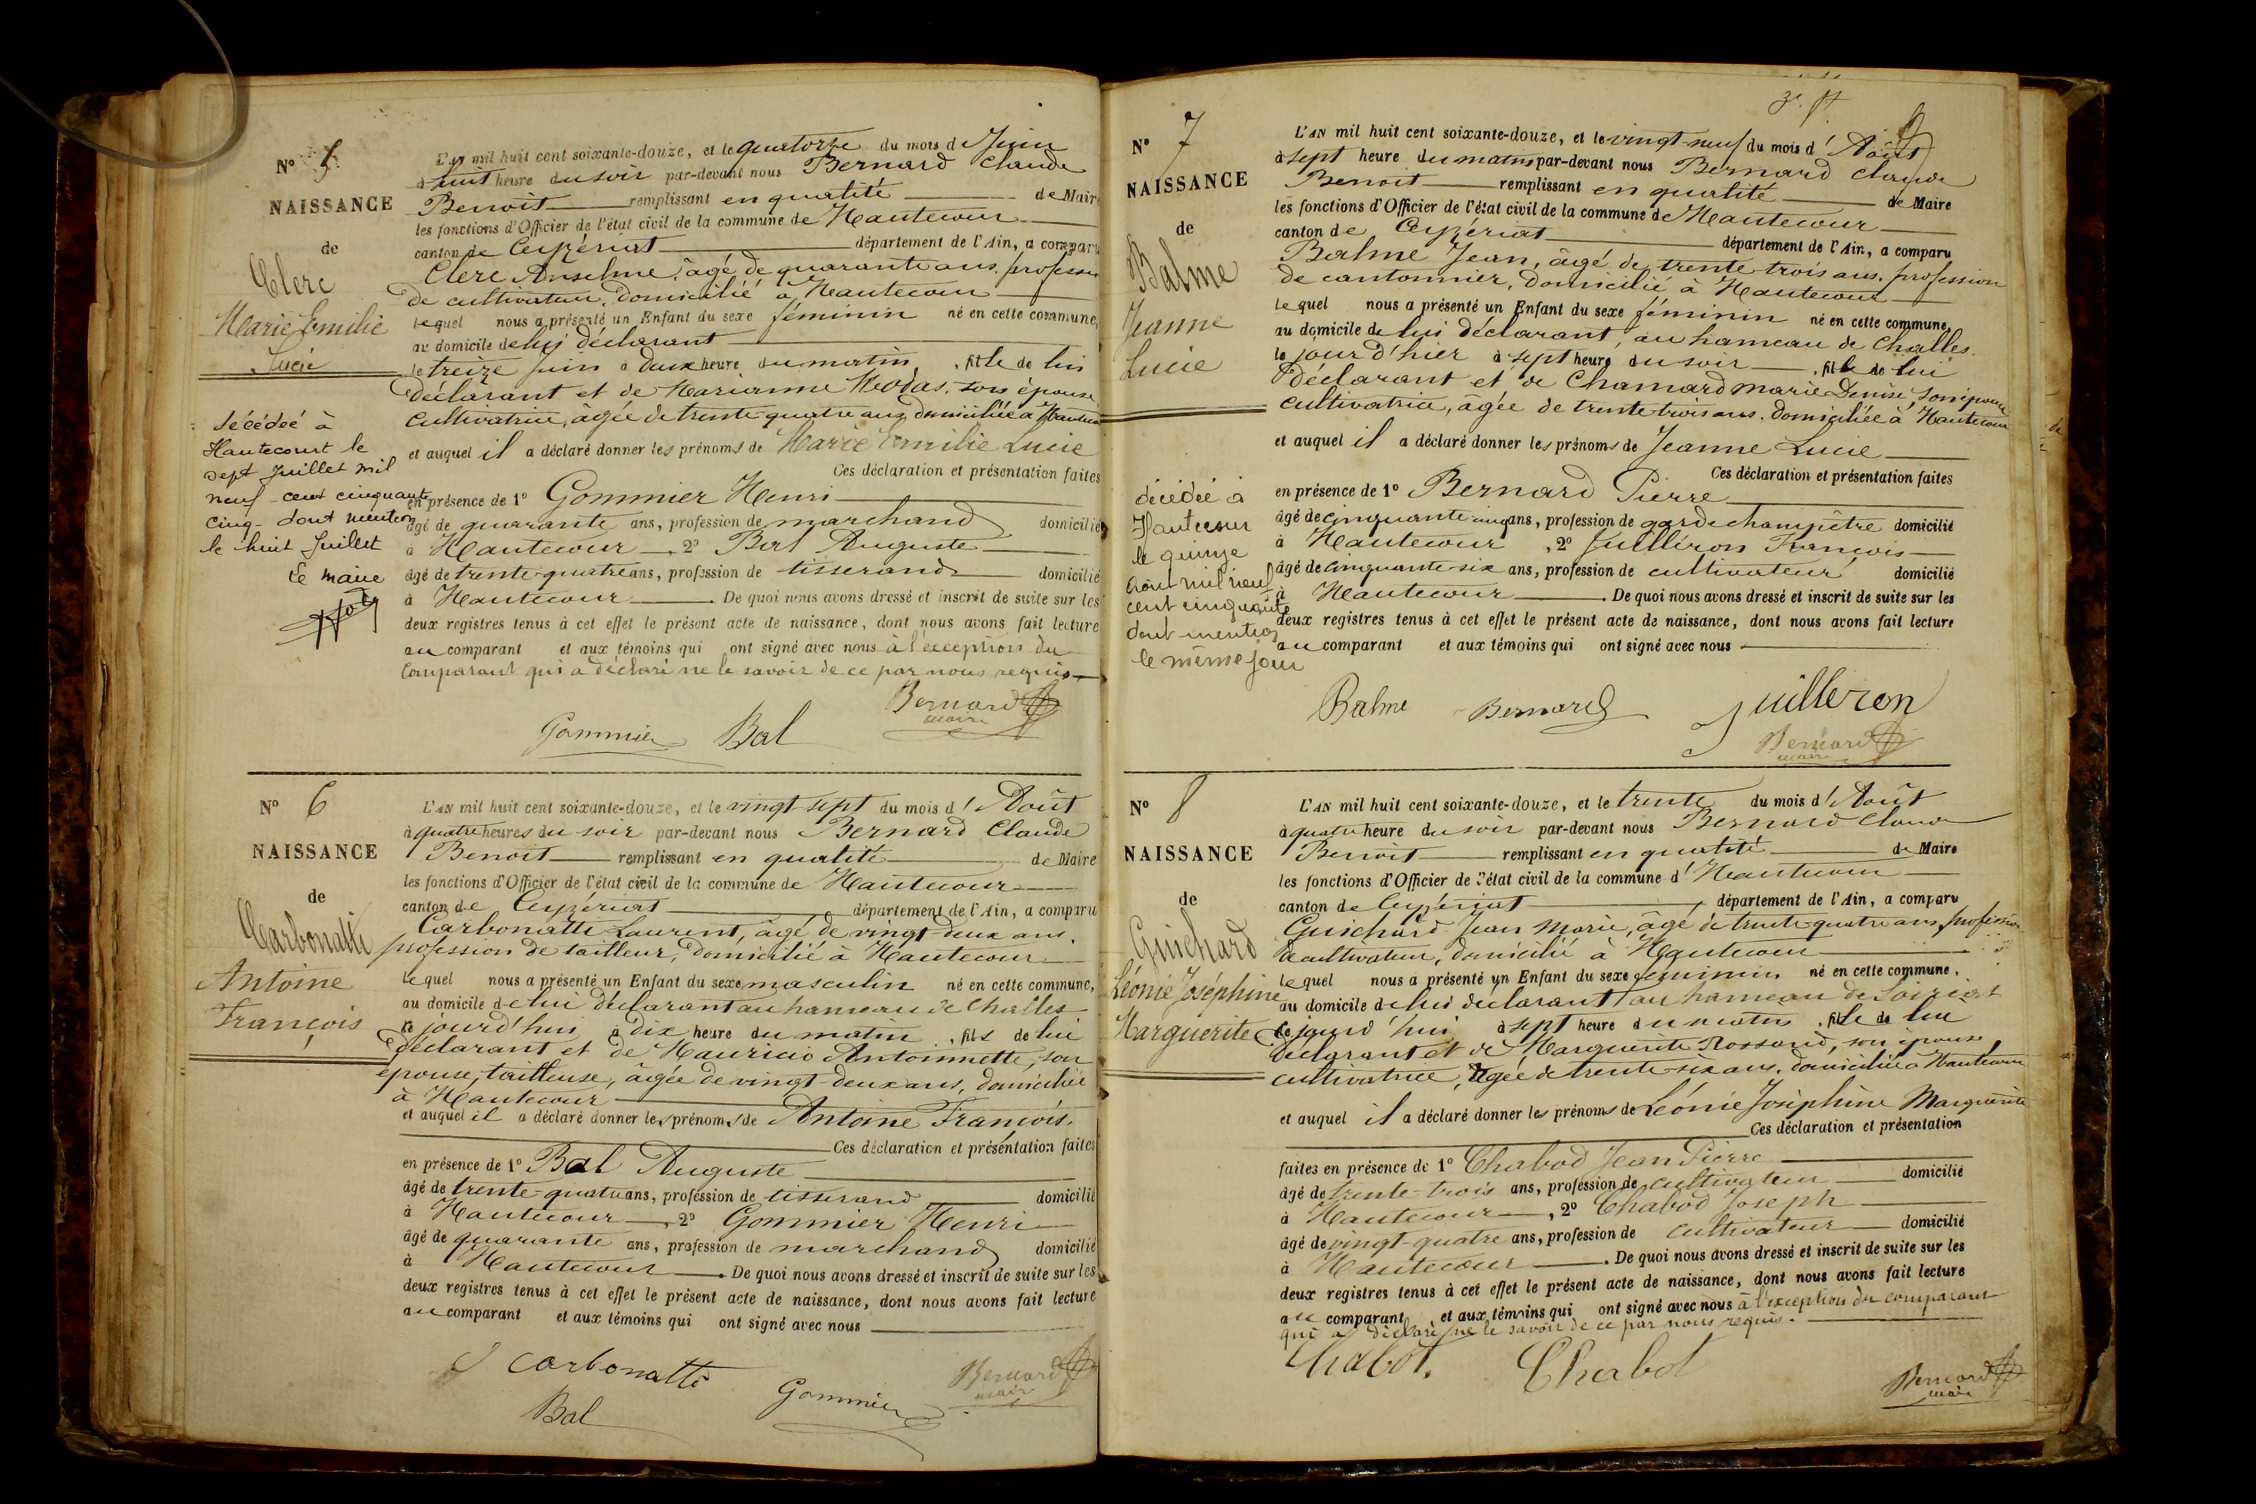 N° 5
NAISSANCE
de
Clerc
Marie Emilie
Lucie
décédée à
Hautecourt le
sept Juillet mil
neuf cent cinquante
cinq - dont mention
le huit Juillet
Le maire
L'AN mil huit cent soixante-douze, et le quatorze du mois de Juin
à huit heure du soir par-devant nous Bernard Claude
Benoit remplissant en qualité de Maire
les fonctions d'Officier de l'état civil de la commune de Hautecour
canton de Ceyzériat département de l'Ain, a comparu
Clerc Anselme, âgé de quarante ans, profession
de cultivateur, domicilié à Hautecour
lequel nous a présenté un Enfant du sexe féminin né en cette commune,
au domicile de lui déclarant
le treize juin à deux heure du matin, fille de lui
déclarant et de Marianne son épouse
cultivatrice, agée de trente quatre ans, domiciliée à Hautecour
et auquel il a déclaré donner les prénoms de Marie Emilie Lucie
Ces déclaration et présentation faites
en présence de 1° Gommier Henri
âgé de quarante ans, profession de marchand domicilié
à Hautecour, 2° Bal Auguste
âgé de trente-quatre ans, profession de tisserand domicilié
à Hautecour. De quoi nous avons dressé et inscrit de suite sur les
deux registres tenus à cet effet le présent acte de naissance, dont nous avons fait lecture
au comparant et aux témoins qui ont signé avec nous à l'exception du
comparant qui a déclaré ne le savoir de ce par nous requis
Gommier Bal Bernard
maire
N° 6
NAISSANCE
de
Carbonatti
Antoine
François
L'AN mil huit cent soixante-douze, et le vingt-sept du mois d'Août
à quatre heures du soir par-devant nous Bernard Claude
Benoit remplissant en qualité de Maire
les fonctions d'Officier de l'état civil de la commune de Hautecour
canton de Ceyzériat département de l'Ain, a comparu
Carbonatti Laurent, âgé de vingt-deux ans,
profession de tailleur, domicilié à Hautecour
lequel nous a présenté un Enfant du sexe masculin né en cette commune,
au domicile de lui déclarant au hameau de Challes
ce jourd'hui à dix heure du matin, fils de lui
déclarant et de Mauricio Antoinnette, son
épouse, tailleuse, âgée de vingt-deux ans, domiciliée
à Hautecour
et auquel il a déclaré donner les prénoms de Antoine François.
Ces déclaration et présentation faites
en présence de 1° Bal Auguste
âgé de trente-quatre ans, profession de tisserand domicilié
à Hautecour, 2° Gommier Henri
âgé de quarante ans, profession de marchand domicilié
à Hautecour. De quoi nous avons dressé et inscrit de suite sur les
deux registres tenus à cet effet le présent acte de naissance, dont nous avons fait lecture
au comparant et aux témoins qui ont signé avec nous
Carbonatti
Bal Gommier Bernard
maire
N° 7
NAISSANCE
de
Balme
Jeanne
Lucie
décédée à
Hautecour
le quinze
Août mil neuf
cent cinquante
dont mention
le même jour
L'AN mil huit cent soixante-douze, et le vingt-neuf du mois d'Août
à sept heure du matin par-devant nous Bernard Claude
Benoit remplissant en qualité de Maire
les fonctions d'Officier de l'état civil de la commune de Hautecour
canton de Ceyzériat département de l'Ain, a comparu
Balme Jean, âgé de trente trois ans, profession
de cantonnier, domicilié à Hautecour
lequel nous a présenté un Enfant du sexe féminin né en cette commune,
au domicile de lui déclarant, au hameau de Challes
le jour d'hier à sept heure du soir, fille de lui
déclarant et de Chanard Marie Denise, son épouse
cultivatrice, âgée de trente trois ans, domiciliée à Hautecour
et auquel il a déclaré donner les prénoms de Jeanne Lucie
Ces déclaration et présentation faites
en présence de 1° Bernard Pierre
âgé de cinquante cinq ans, profession de garde champêtre domicilié
à Hautecour, 2° Juilleron François
âgé de cinquante-six ans, profession de cultivateur domicilié
à Hautecour. De quoi nous avons dressé et inscrit de suite sur les
deux registres tenus à cet effet le présent acte de naissance, dont nous avons fait lecture
au comparant et aux témoins qui ont signé avec nous
Balme Bernard Juilleron
Bernard
maire
N° 8
NAISSANCE
de
Guichard
Léonie Joséphine
Marguerite
L'AN mil huit cent soixante-douze, et le trente du mois d'Août
à quatre heure du soir par-devant nous Bernard Claude
Benoit remplissant en qualité de Maire
les fonctions d'Officier de l'état civil de la commune d'Hautecour
canton de Ceyzériat département de l'Ain, a comparu
Guichard Jean Marie, âgé de trente-quatre ans, profession
de cultivateur, domicilié à Hautecour
lequel nous a présenté un Enfant du sexe féminin né en cette commune,
au domicile de lui déclarant au hameau de
ce jourd'hui à sept heure du matin, fille de lui
déclarant et de Marguerite Rossand, son épouse,
cultivatrice, agée de trente-six ans, domiciliée à Hautecour
et auquel il a déclaré donner les prénoms de Léonie Joséphine Marguerite
Ces déclaration et présentation
faites en présence de 1° Chabod Jean Pierre
âgé de trente-trois ans, profession de cultivateur domicilié
à Hautecour, 2° Chabod Joseph
âgé de vingt-quatre ans, profession de cultivateur domicilié
à Hautecour. De quoi nous avons dressé et inscrit de suite sur les
deux registres tenus à cet effet le présent acte de naissance, dont nous avons fait lecture
au comparant et aux témoins qui ont signé avec nous à l'exception du comparant
qui a déclaré ne le savoir de ce par nous requis.
Chabot. Chabot Bernard
maire